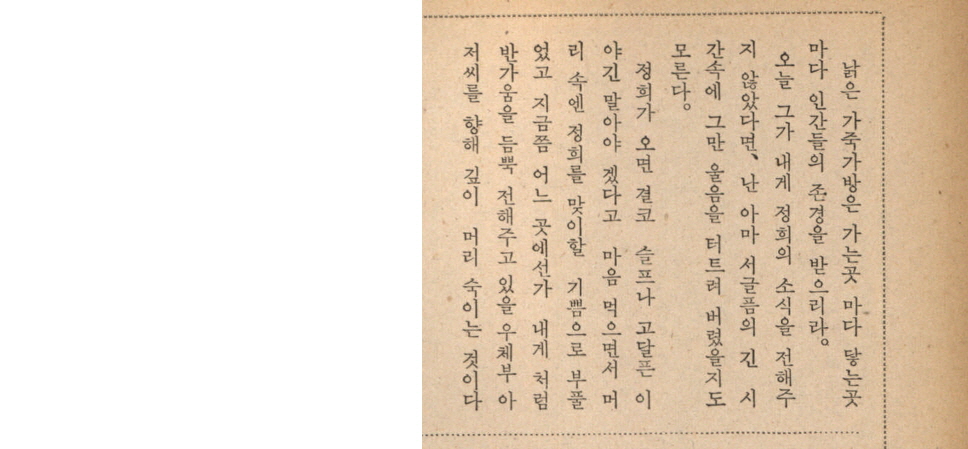 낡은 가죽가방은 가는곳 마다 닿는곳
마다 인간들의 존경을 받으리라。
오늘 그가 내게 정희의 소식을 전해주
지 않았다면、난 아마 서글픔의 긴 시
간속에 그만 울음을 터트려 버렸을지도
모른다。
정희가 오면 결코 슬프나 고달픈 이
야긴 말아야 겠다고 마음 먹으면서 머
리 속엔 정희를 맞이할 기쁨으로 부풀
었고 지금쯤 어느 곳에선가 내게 처럼
반가움을 듬뿍 전해주고 있을 우체부 아
저씨를 향해 깊이 머리 숙이는 것이다